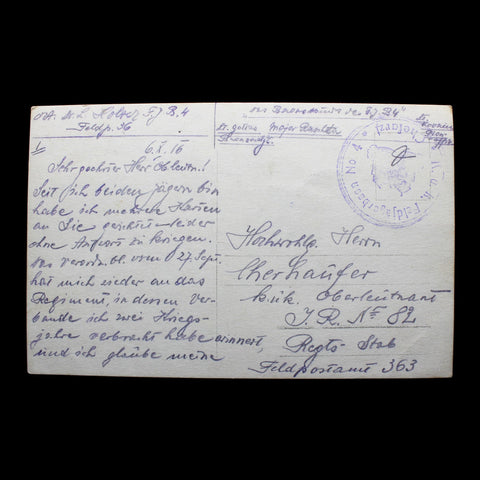 Dr. L. Holzer FJ B. 4
Feldp. 36
6. X. 16
Sehr geehrter Herr Obleutn.!
Seit ich bei den Jägern bin
habe ich mehrere Karten
an Sie gerichtet leider
ohne Antwort zu kriegen.
Das Verordn. bl. vom 27. Sept.
hat mich wieder an das
Regiment, in dessen Ver-
bande ich zwei Kriegs-
jahre verbracht habe erinnert,
und ich glaube meine
K.u.K. Feldjägerbaon No 4
Hochwohlg. Herrn
Oherhaufer
k.u.k. Oberleutnant
I. R. No 82
Regts Stab
Feldpostamt 363